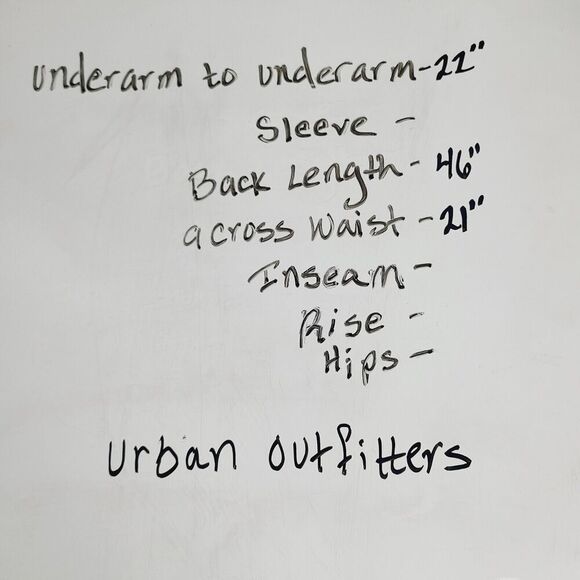 underarm to underarm-22"
Sleeve -
Back Length - 46"
across Waist - 21"
Inseam -
Rise -
Hips -
urban outfitters